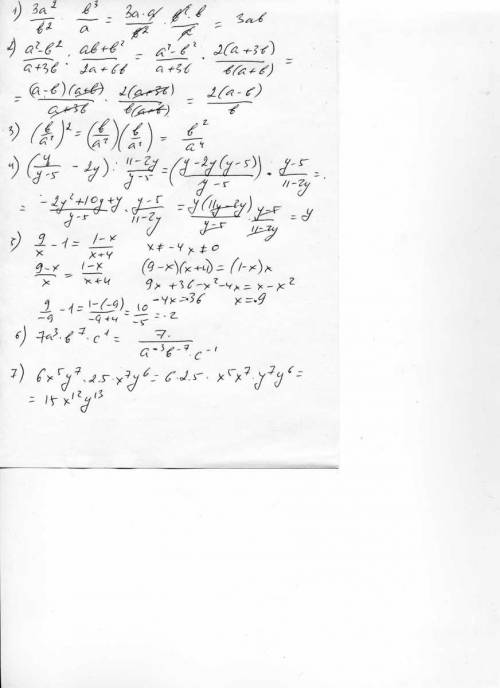 1) 3a²/b² · b³/a = 3a·a/b² · b²·b/a = 3ab
2) a²-b²/a+3b : ab+b²/2a+6b = a²-b²/a+3b · 2(a+3b)/b(a+b) =
= (a-b)(a+b)/a+3b · 2(a+3b)/b(a+b) = 2(a-b)/b
3) (b/a²)² = (b/a²)(b/a²) = b²/a⁴
4) (y/y-5 - 2y) : 11-2y/y-5 = (y-2y(y-5)/y-5) · y-5/11-2y =
= -2y²+10y+y/y-5 · y-5/11-2y = y(11y-2y)/y-5 · y-5/11-2y = y
5) 9/x - 1 = 1-x/x+4 x≠-4 x≠0
9-x/x = 1-x/x+4 (9-x)(x+4) = (1-x)x
9x+36-x²-4x = x-x²
9/-9 - 1 = 1-(-9)/-9+4 = 10/-5 = -2 -4x=36 x=-9
6) 7a³·b⁷·c¹ = 7/a⁻³b⁻⁷·c⁻¹
7) 6x⁵y⁷·2.5·x⁷y⁶ = 6·2.5·x⁵x⁷·y⁷y⁶ =
= 15x¹²y¹³